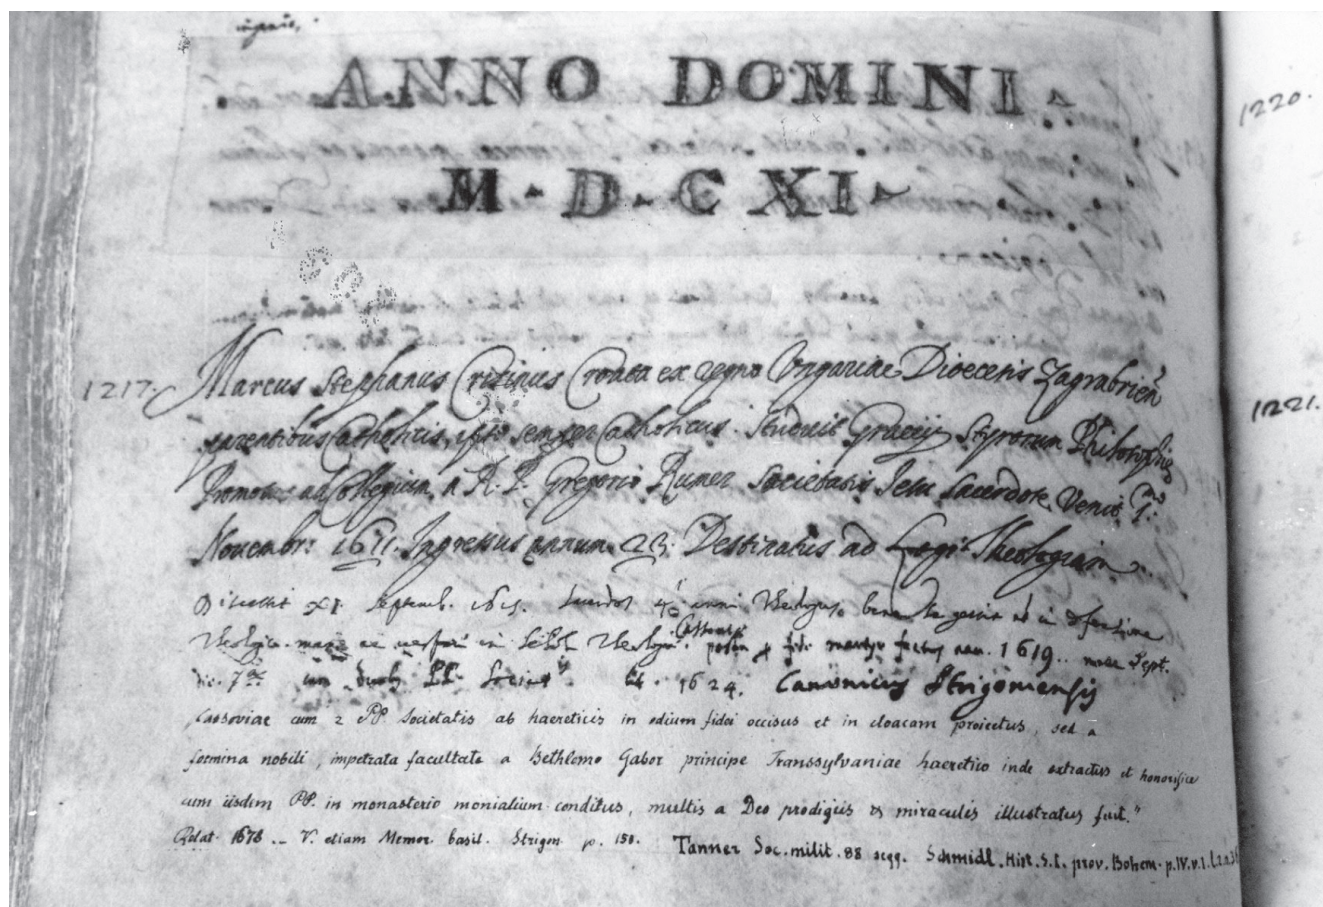 ANNO DOMINI
M·D·C XI
1220.
1217. Marcus Stephanus Crisinus Croata ex regno Vngariae Dioecesis Zagrabrien
1221.
parentibus Catholicis, ipse semper Catholicus. Studuit Graecij Styrorum Philosophiae
Promotus ad Collegium a R. P. Gregorio Rumer Societatis Iesu Sacerdote. Venit
Novembr: 1611. Ingressus annum 23. Destinatus ad Theologiam.
Discessit XI Septemb. 1615. Sacerdos anni Theologus, bene se gessit et in defensione
Theologica mane ac vesperi in
Cassoviae
martyr factus 1619. mense Sept.
die 7 cum PP. 1624. Canonicus Strigoniensis
Cassoviae cum 2 PP. Societatis ab haereticis in odium fidei occisus et in cloacam proiectus, sed a
foemina nobili, impetrata facultate a Bethlemo Gabor principe Transsylvaniae haeretico inde extractus et honorifice
cum iisdem PP. in monasterio monialium conditus, multis a Deo prodigiis & miraculis illustratus fuit."
Relat. 1678. - V. etiam Memor. basil. Strigon p. 158. Tanner Soc. milit. 88 seqq. Schmidl. Hist. S.I. prov. Bohem. p. IV. v. I.